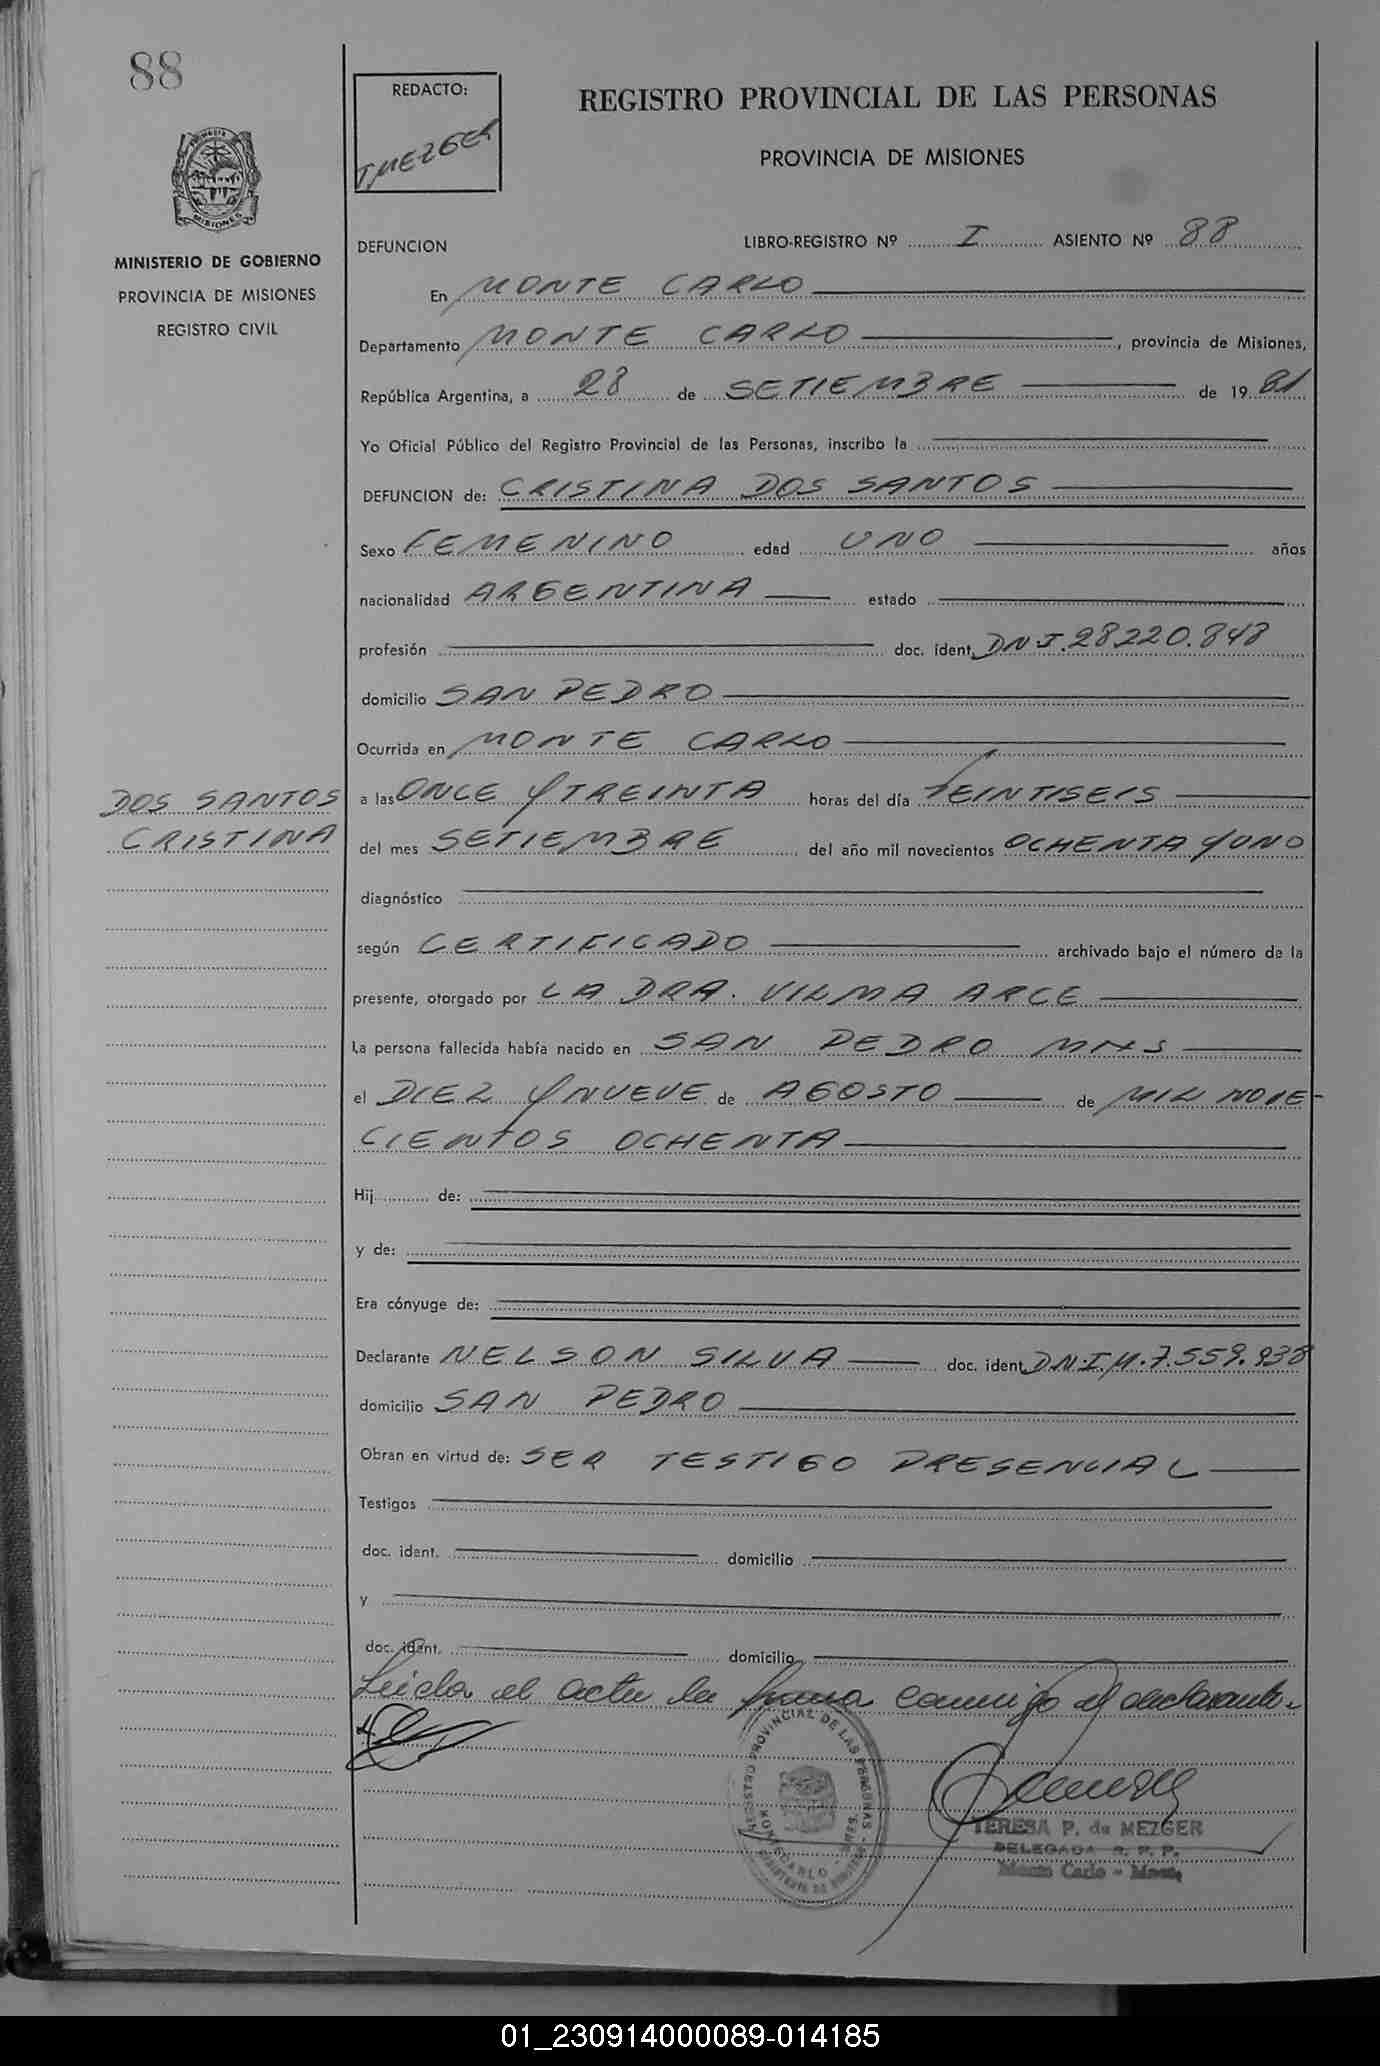 88
REDACTO:
T,MEZGER
REGISTRO PROVINCIAL DE LAS PERSONAS
PROVINCIA DE MISIONES
MISIONES
MINISTERIO DE GOBIERNO
PROVINCIA DE MISIONES
REGISTRO CIVIL
DEFUNCION
LIBRO-REGISTRO Nº I ASIENTO Nº 88
En MONTE CARLO
Departamento MONTE CARLO, provincia de Misiones,
República Argentina, a 28 de SETIEMBRE de 19 81
Yo Oficial Público del Registro Provincial de las Personas, inscribo la
DEFUNCION de: CRISTINA DOS SANTOS
Sexo FEMENINO edad UNO años
nacionalidad ARGENTINA estado
profesión doc. ident. DNI.28220.848
domicilio SAN PEDRO
Ocurrida en MONTE CARLO
DOS SANTOS
CRISTINA
a las ONCE Y TREINTA horas del día VEINTISEIS
del mes SETIEMBRE del año mil novecientos OCHENTA Y UNO
diagnóstico
según CERTIFICADO archivado bajo el número de la
presente, otorgado por LA DRA. VILMA ARCE
La persona fallecida había nacido en SAN PEDRO MNS
el DIEZ Y NUEVE de AGOSTO de MIL NOVE-
CIENTOS OCHENTA
Hij de:
y de:
Era cónyuge de:
Declarante NELSON SILVA doc. ident. D.N.I.M.7.559.938
domicilio SAN PEDRO
Obran en virtud de: SER TESTIGO PRESENCIAL
Testigos
doc. ident. domicilio
y
doc. ident. domicilio
Leida el acta la firma conmigo el declarante.
REGISTRO PROVINCIAL DE LAS PERSONAS
MONTECARLO - MNES.
TERESA P. de MEZGER
DELEGADA R. P. P.
Monte Carlo - Mnes.
01_230914000089-014185